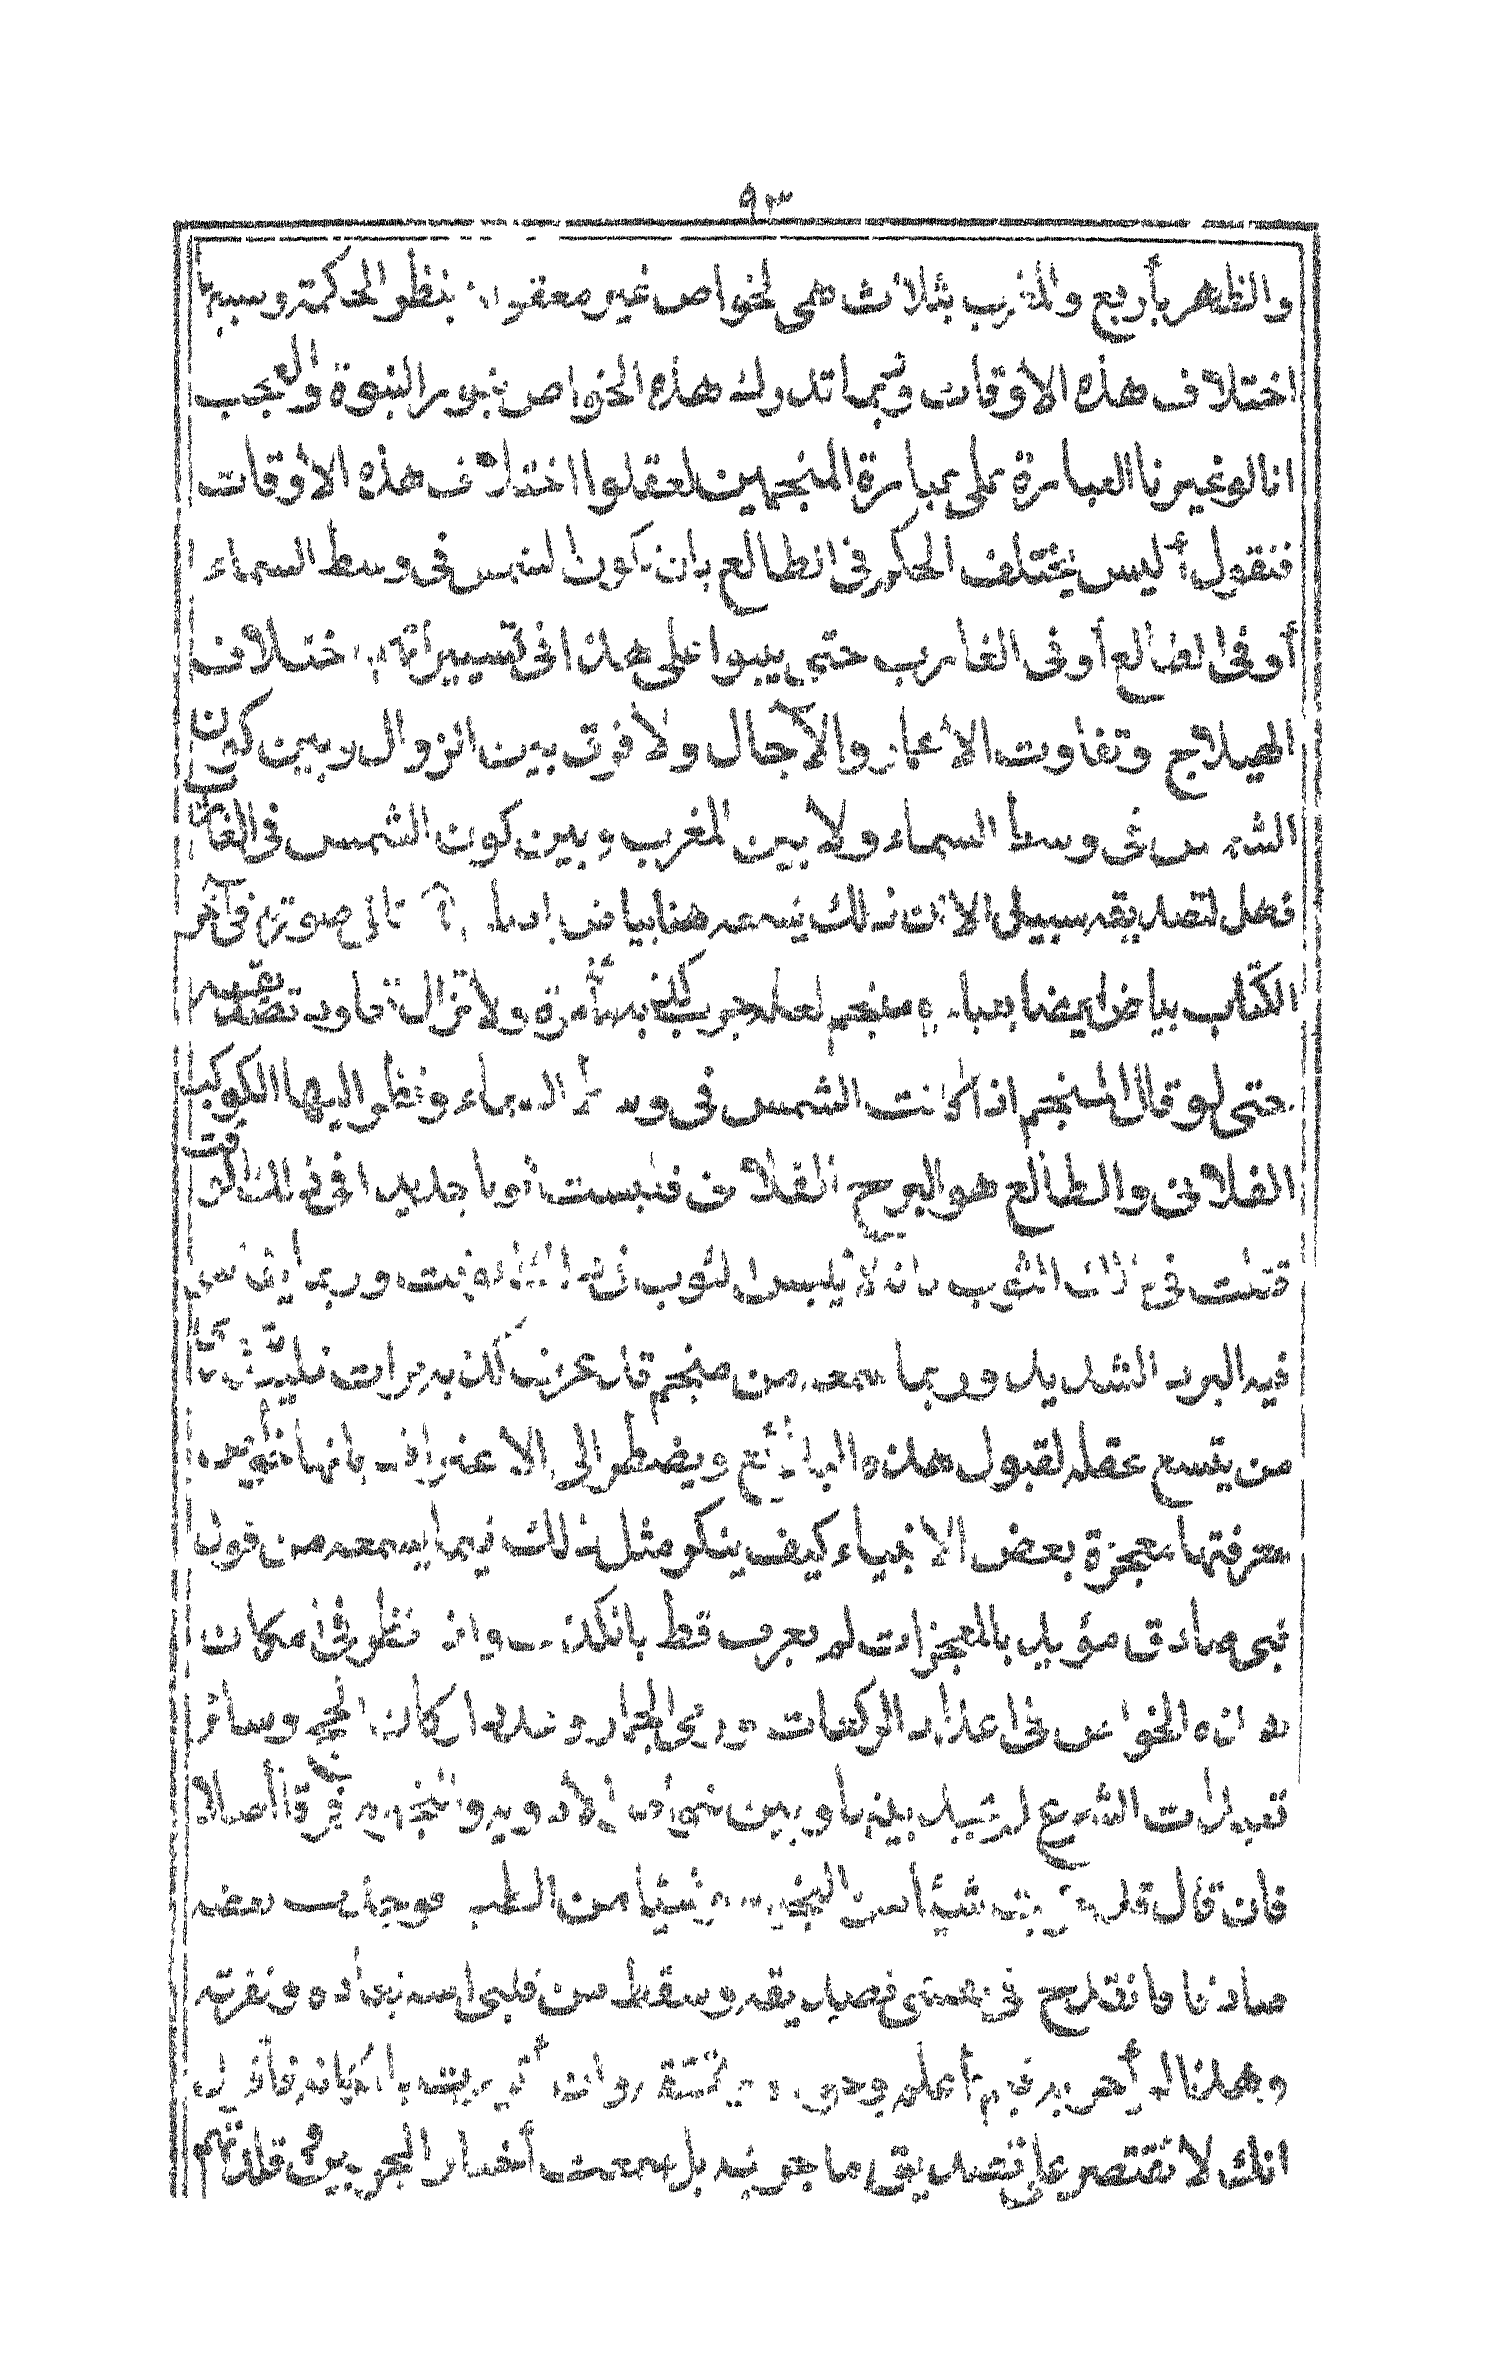 ٩٣
والظهر بأربع والمغرب بثلاث هي لخواص غير معقولة بنظر الحكمة وسببها
اختلاف هذه الأوقات وتمما تدرك هذه الخواص بنور النبوة والعجب
انا لو غيرنا العبارة على عبارة المنجمين لعقلوا اختلاف هذه الأوقات
فنقول أليس يختلف الحكم في الطالع بان تكون الشمس في وسط السماء
أو في الطالع أو في الغارب حتى يبنوا على هذا في تسييراتهم اختلاف
العلاج وتفاوت الأعمار والآجال ولا فرق بين الزوال وبين كون
الشمس في وسط السماء ولا بين المغرب وبين كون الشمس في الغارب
فهل لتصديقه سبيل الا ان ذلك يسمعه هنا بياض تأتي صورته في آخر
الكتاب بياض ايضا بعبارة منجم لعله جرب كذبه مأمرة ولا تزال تعاود تصديقه
حتى لو قال المنجم اذا كانت الشمس في وسط السماء ونظر اليها الكوكب
الفلاني والطالع هو البرج الفلاني فلبست ثوبا جديدا في ذلك الوقت
قتلت في ذلك الثوب فانه لا يلبس الثوب في ذلك الوقت وربما يقاسي
فيه البرد الشديد وربما سمعه من منجم قد عرف كذبه مرات فليت شعري
من يتسع عقله لقبول هذه البدائع ويضطر الى الاعتراف بانها خواص
معرفتها معجزة بعض الانبياء كيف ينكر مثل ذلك فيما يسمعه من قول
نبي صادق مؤيد بالمعجزات لم يعرف قط بالكذب وان نظر في امكان
هذه الخواص في اعداد الركعات ورمي الجمار وعدد اركان الحج وسائر
تعبدات الشرع لم يجد بينها وبين خواص الأدوية والنجوم فرقا أصلا
فان قال قد جربت شيئا من النجوم وشيئا من الطب فوجدت بعضه
صادقا فانقدح في نفسي تصديقه وسقط من قلبي استبعاده ونفرته
وهذا لم أجربه فبم أعلم وجوده وتحققه وان أقررت بامكانه فأقول
انك لا تقتصر على تصديق ما جربته بل سمعت أخبار المجربين وقلدتهم